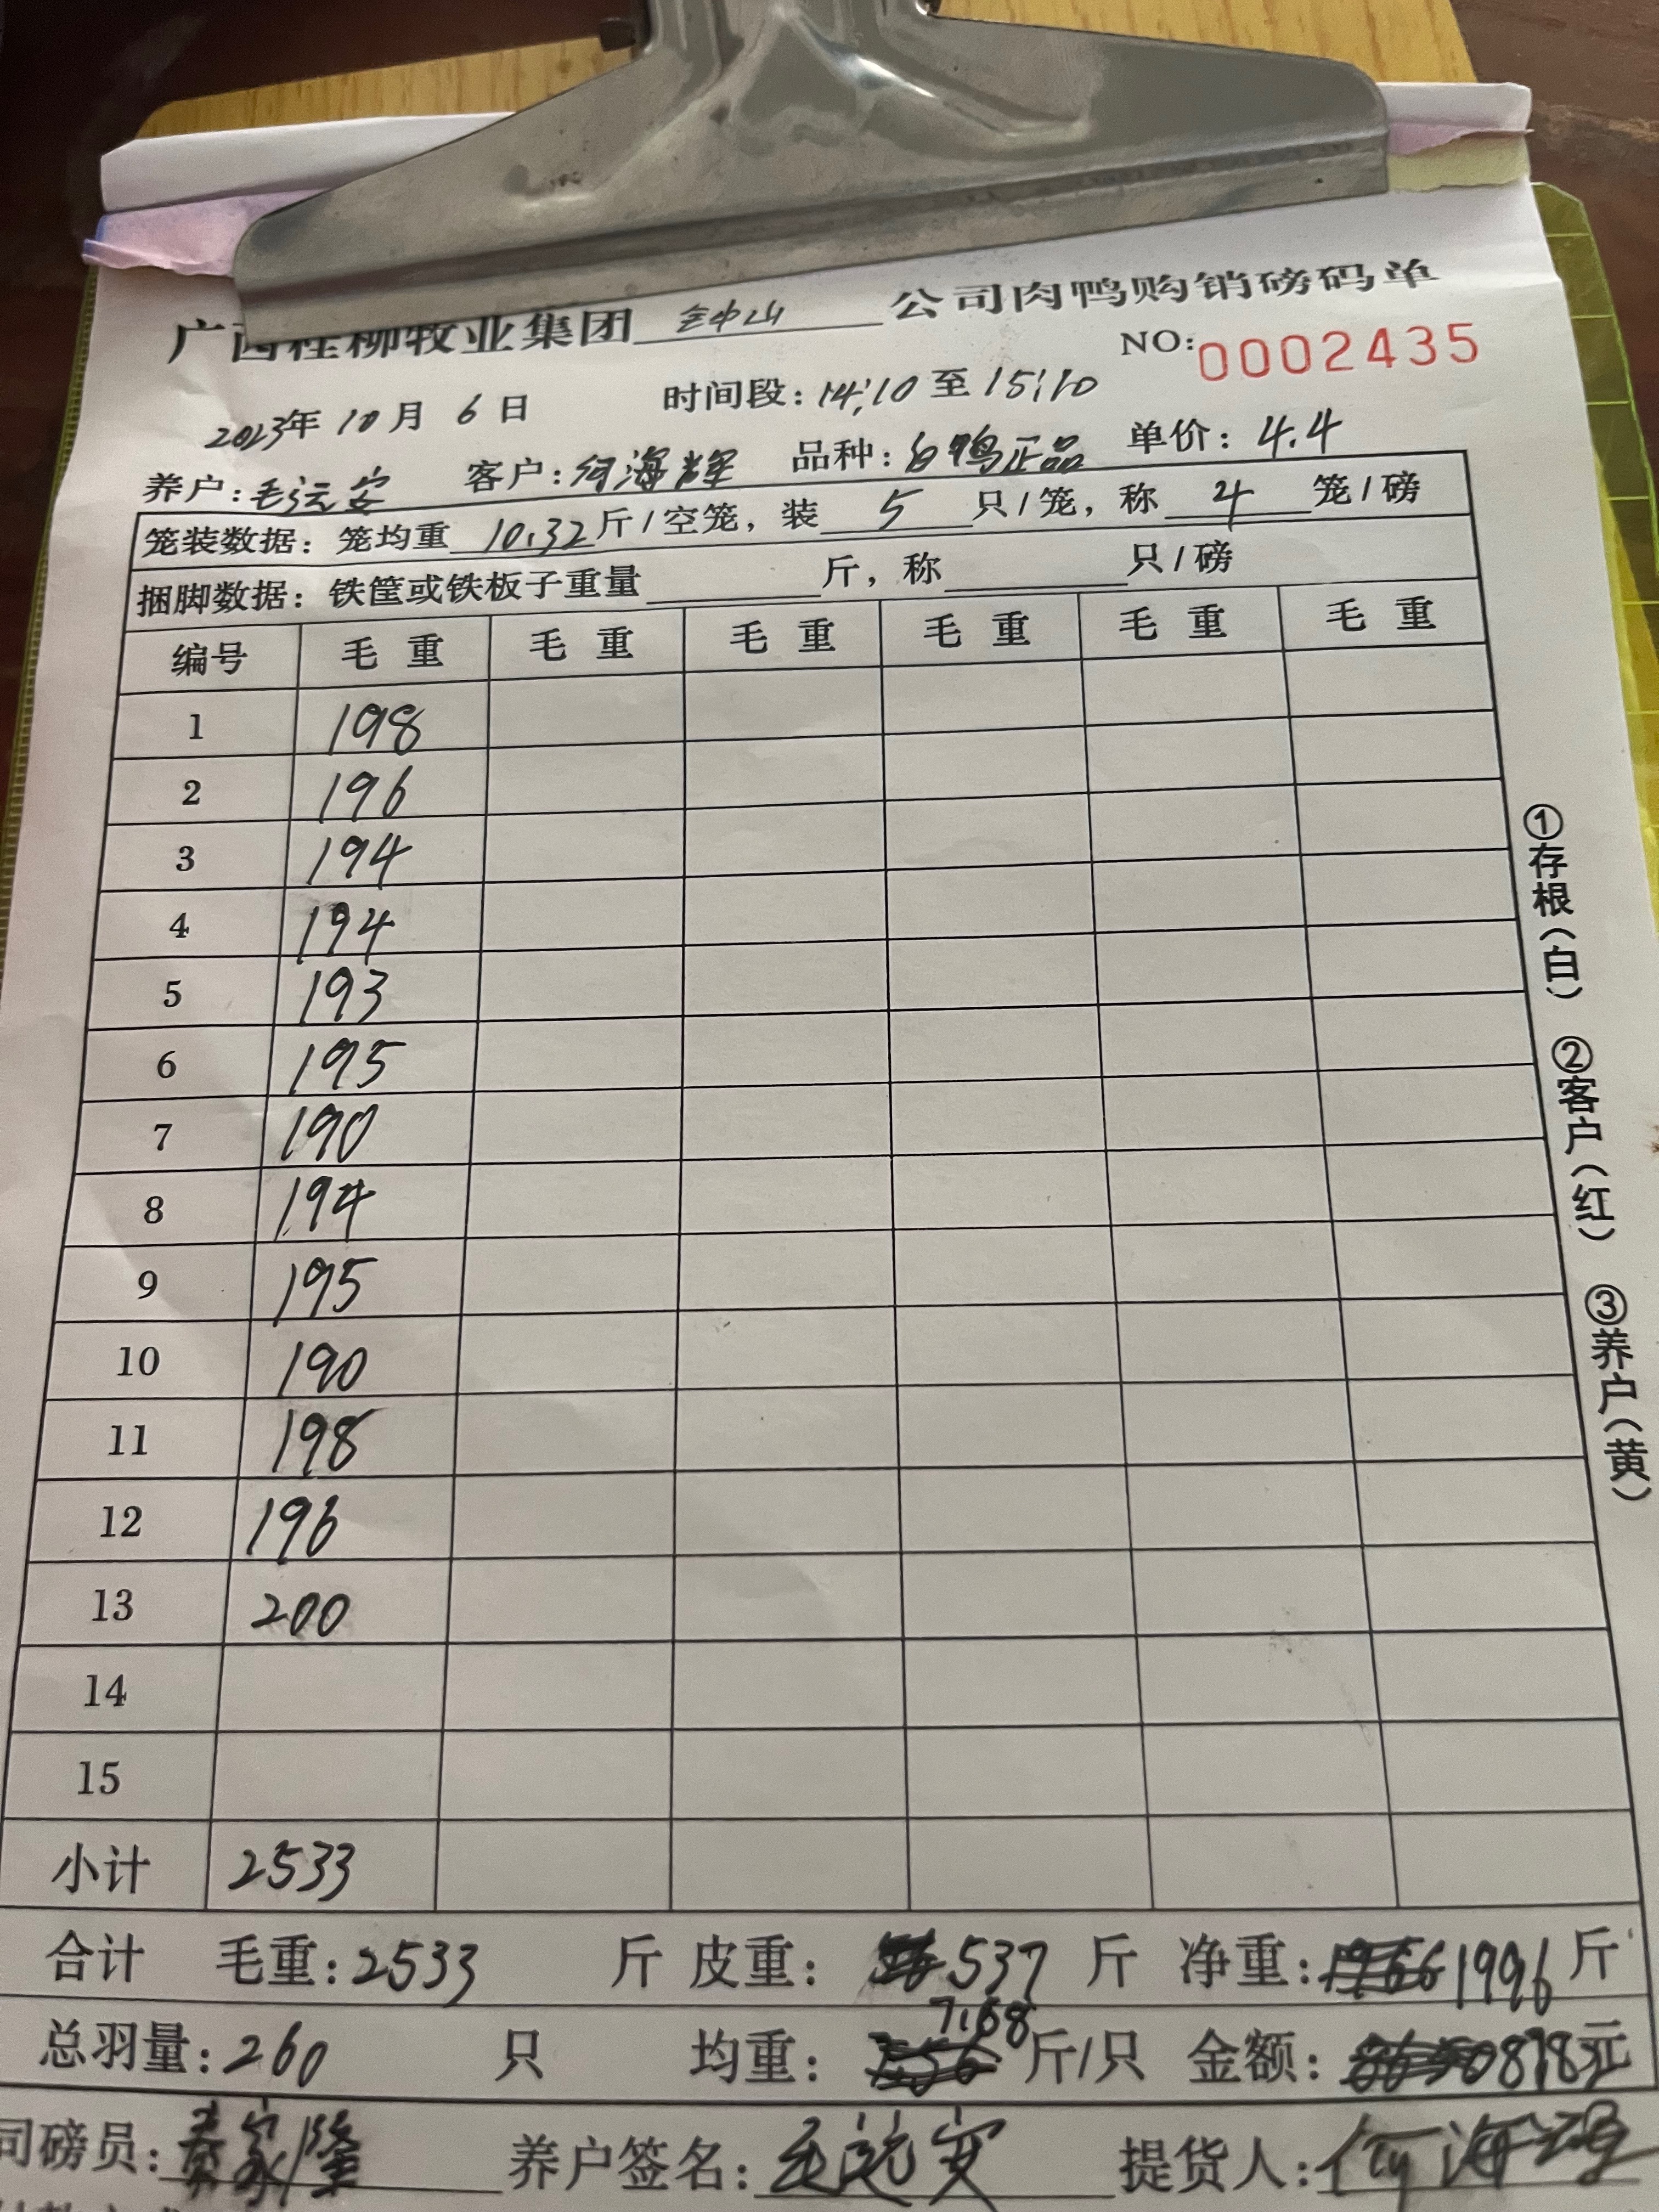 广西桂柳牧业集团 钟山 公司肉鸭购销磅码单
NO:0002435
2023年 10月 6日 时间段:14:10 至 15:10
养户:毛远安 客户:何海辉 品种:白鸭正品 单价:4.4
笼装数据:笼均重 10.32 斤/空笼,装 5 只/笼,称 4 笼/磅
捆脚数据:铁筐或铁板子重量 斤,称 只/磅
编号 毛重 毛重 毛重 毛重 毛重 毛重
1 198
2 196
3 194
4 194
5 193
6 195
7 190
8 194
9 195
10 190
11 198
12 196
13 200
14
15
小计 2533
合计 毛重:2533 斤 皮重:537 斤 净重:1996 斤
总羽量:260 只 均重:7.68 斤/只 金额:8783元
司磅员:秦家隆 养户签名:毛远安 提货人:何海辉
①存根(白) ②客户(红) ③养户(黄)